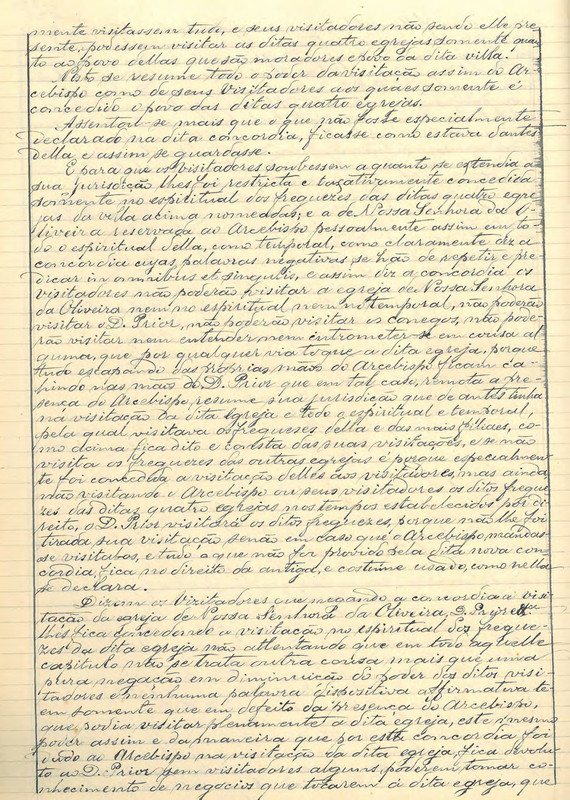 mente visitassem tudo, e seus visitadores não sendo elle pre-
sente, podessem visitar as ditas quatro egrejas somente quan-
to ao povo dellas que são moradores e povo da dita villa.
Nisto se resume todo o poder da visitação assim do Ar-
cebispo como de seus Visitadores aos quaes somente é
concedido o povo das ditas quatro egrejas.
Assentou-se mais que o que não fosse especialmente
declarado na dita concordia, ficasse como estava d'antes
della e assim se guardasse.
E para que os visitadores soubessem a quanto se extendia a
sua jurisdição lhes foi restricta e taxativamente concedida
somente no espiritual dos freguezes das ditas quatro egre-
jas da villa acima nomeadas; e a de Nossa Senhora da O-
liveira reservada ao Arcebispo pessoalmente assim em to-
do o espiritual della, como temporal, como claramente diz a
concordia cujas palavras negativas se hão de repetir e pre-
dicar in omnibus et singulis, e assim diz a concordia os
visitadores não poderão visitar a egreja de Nossa Senhora
da Oliveira nem no espiritual nem no temporal, não poderão
visitar o D. Prior, não poderão visitar os conegos, não pode-
rão visitar nem entender nem entrometer-se em cousa al-
guma, que por qualquer via toque a dita egreja, porque
tudo escapando das proprias mãos do Arcebispo ficam ca-
hindo nas mãos do D. Prior que em tal caso, remota a pre-
sença do Arcebispo, resume sua jurisdição que de antes tinha
na visitação da dita Egreja e todo o espiritual e temporal,
pela qual visitava os freguezes della e das mais filiaes, co-
mo acima fica dito e consta das suas visitações, e se não
visita os freguezes das outras egrejas é porque especialmen-
te foi concedida a visitação delles aos visitadores, mas ainda
não visitando o Arcebispo ou seus visitadores os ditos fregue-
zes das ditas quatro egrejas nos tempos estabelecidos por di-
reito, o D. Prior visitará os ditos freguezes, porque não lhe foi
tirada sua visitação senão em caso que o Arcebispo mandas-
se visital-os, e tudo a que não foi provido pela dita nova con-
cordia, fica no direito da antiga, e costume usado, como nella
se declara.
Dizem os Vizitadores que negando a concordia a visi-
tação da egreja de Nossa Senhora da Oliveira, D. Prior etta
lhes fica concedendo a visitação no espiritual dos fregue-
zes da dita egreja não attentando que em todo aquelle
capitulo não se trata outra cousa mais que uma
pura negação em diminuição do poder dos ditos visi-
tadores e nenhuma palavra dispositiva affirmativa te-
em somente que em defeito da presença do Arcebispo,
que podia visitar plenamente a dita egreja, este mesmo
poder assim e da maneira que por esta concordia foi
dado ao Arcebispo na visitação da dita egreja, fica devolu-
to ao D. Prior sem visitadores alguns, poderem tomar co-
nhecimento de negocios que tocarem á dita egreja, que